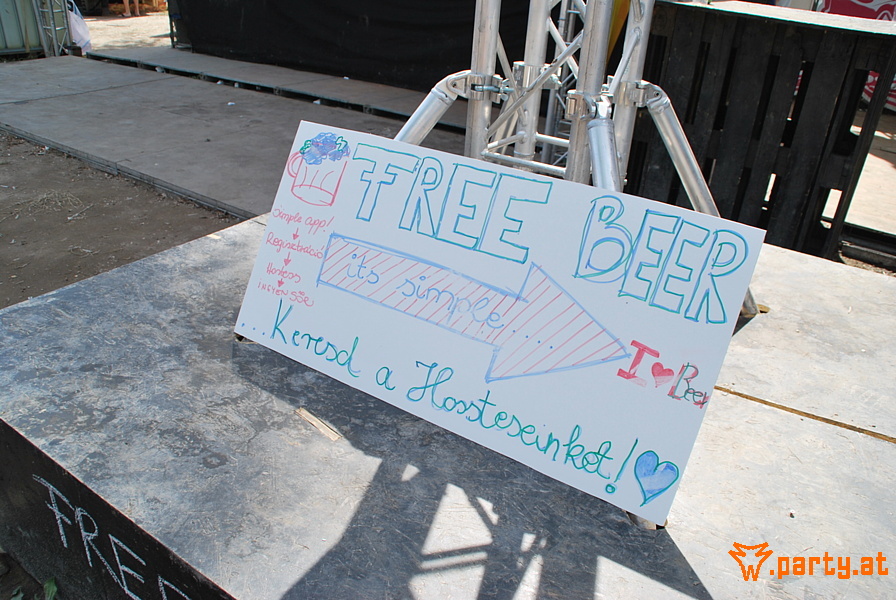 FREE BEER
simple app!
Regisztráció
Hostess
INGYEN SÖR
its simple...
I ❤ Beer
...Keresd a Hosteseinket!
FREE
.party.at